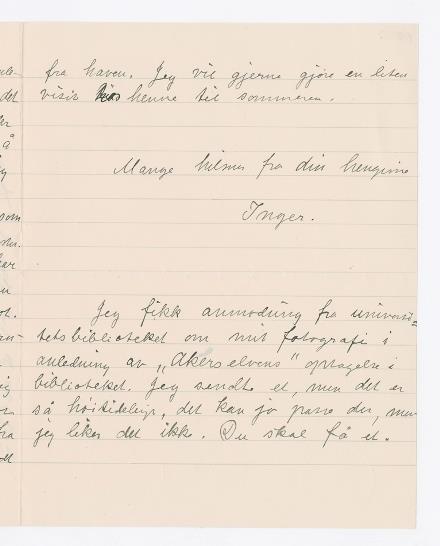 fra haven. Jeg vil gjerne gjøre en liten
visit hos henne til sommeren.
Mange hilsner fra din hengivne
Inger.
Jeg fikk anmodning fra universi=
tetsbiblioteket om mit fotografi i
anledning av „Akerselvens" optagelse i
biblioteket. Jeg sendte et, men det er
så høitidelig, det kan jo passe der, men
jeg liker det ikke. Du skal få et.